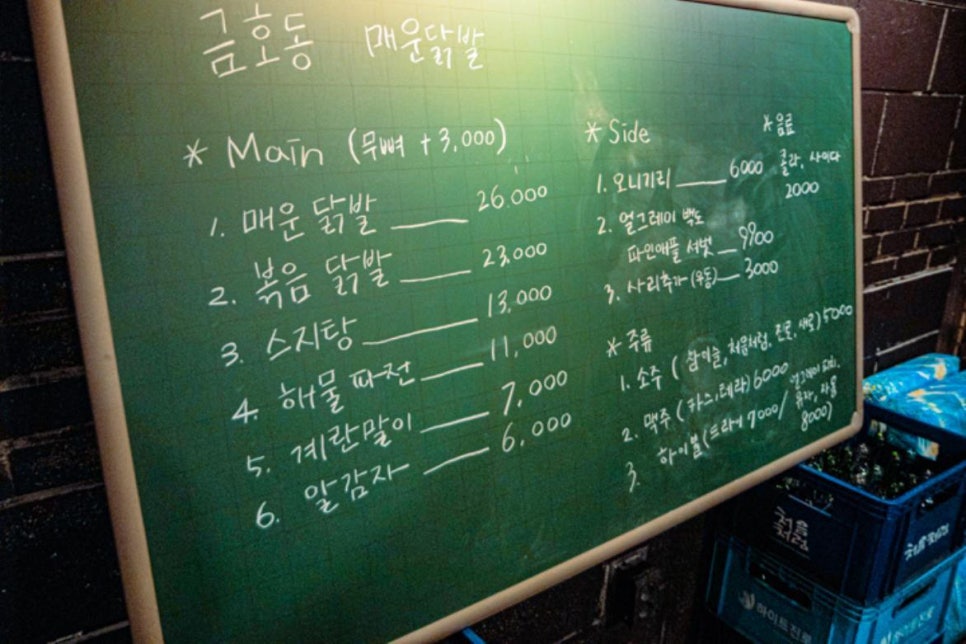 금호동 매운닭발
* Main (무뼈 +3,000)
1. 매운 닭발 26.000
2. 볶음 닭발 23.000
3. 스지탕 13.000
4. 해물파전 11,000
5. 계란말이 7,000
6. 알감자 6.000
* Side
1. 오니기리 6000
2. 얼그레이 백도
파인애플 셔벗 9900
3. 사리추가(우동) 3000
* 음료
콜라, 사이다
2000
* 주류
1. 소주 (참이슬, 처음처럼, 진로, 새로) 5000
2. 맥주 (카스, 테라) 6000
3. 하이볼 (트라이 7000/ 얼그레이
유자, 자몽
8000)
처음
처럼
처음처럼
하이트진로